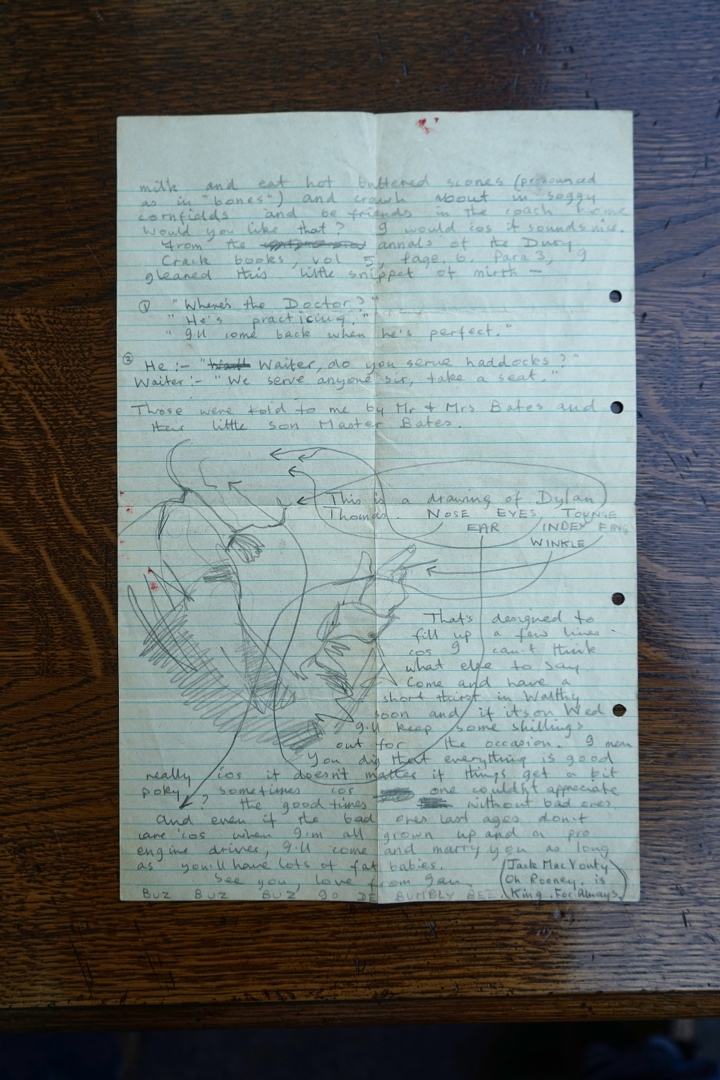 milk and eat hot buttered scones (pronounced
as in "bones") and crawl about in soggy
cornfields and be friends in the coach home
Would you like that? I would cos it sounds nice.
From the annals of the Dusry
Crack books, vol 5, page, 6. Para 3, I
gleaned this little snippet of mirth –
① "Where's the Doctor?"
"He's practicing."
"I'll come back when he's perfect."
② He :- " Waiter, do you serve haddocks?"
Waiter:- "We serve anyone sir, take a seat."
Those were told to me by Mr + Mrs Bates and
their little son Master Bates.
This is a drawing of Dylan
Thomas. NOSE EYES TOUNGE
EAR INDEX FING
WINKLE
That's designed to
fill up a few lines
cos I can't think
what else to say
Come and have a
short in Walthy
soon and if it's on Wed
I'll keep some shillings
out for the occasion. I mean
You dig that everything is good
really cos it doesn't matter if things get a bit
poky? sometimes cos one couldn't appreciate
the good times without bad ones.
And even if the bad ones last ages don't
care 'cos when I'm all grown up and a pro
engine driver, I'll come and marry you as long
as you'll have lots of fat babies.
See you, love from Ian.
BUZ BUZ BUZ GO DE BUMBLY BEE.
(Jack MacVouty
Oh Rooney, is
King. For Always.)